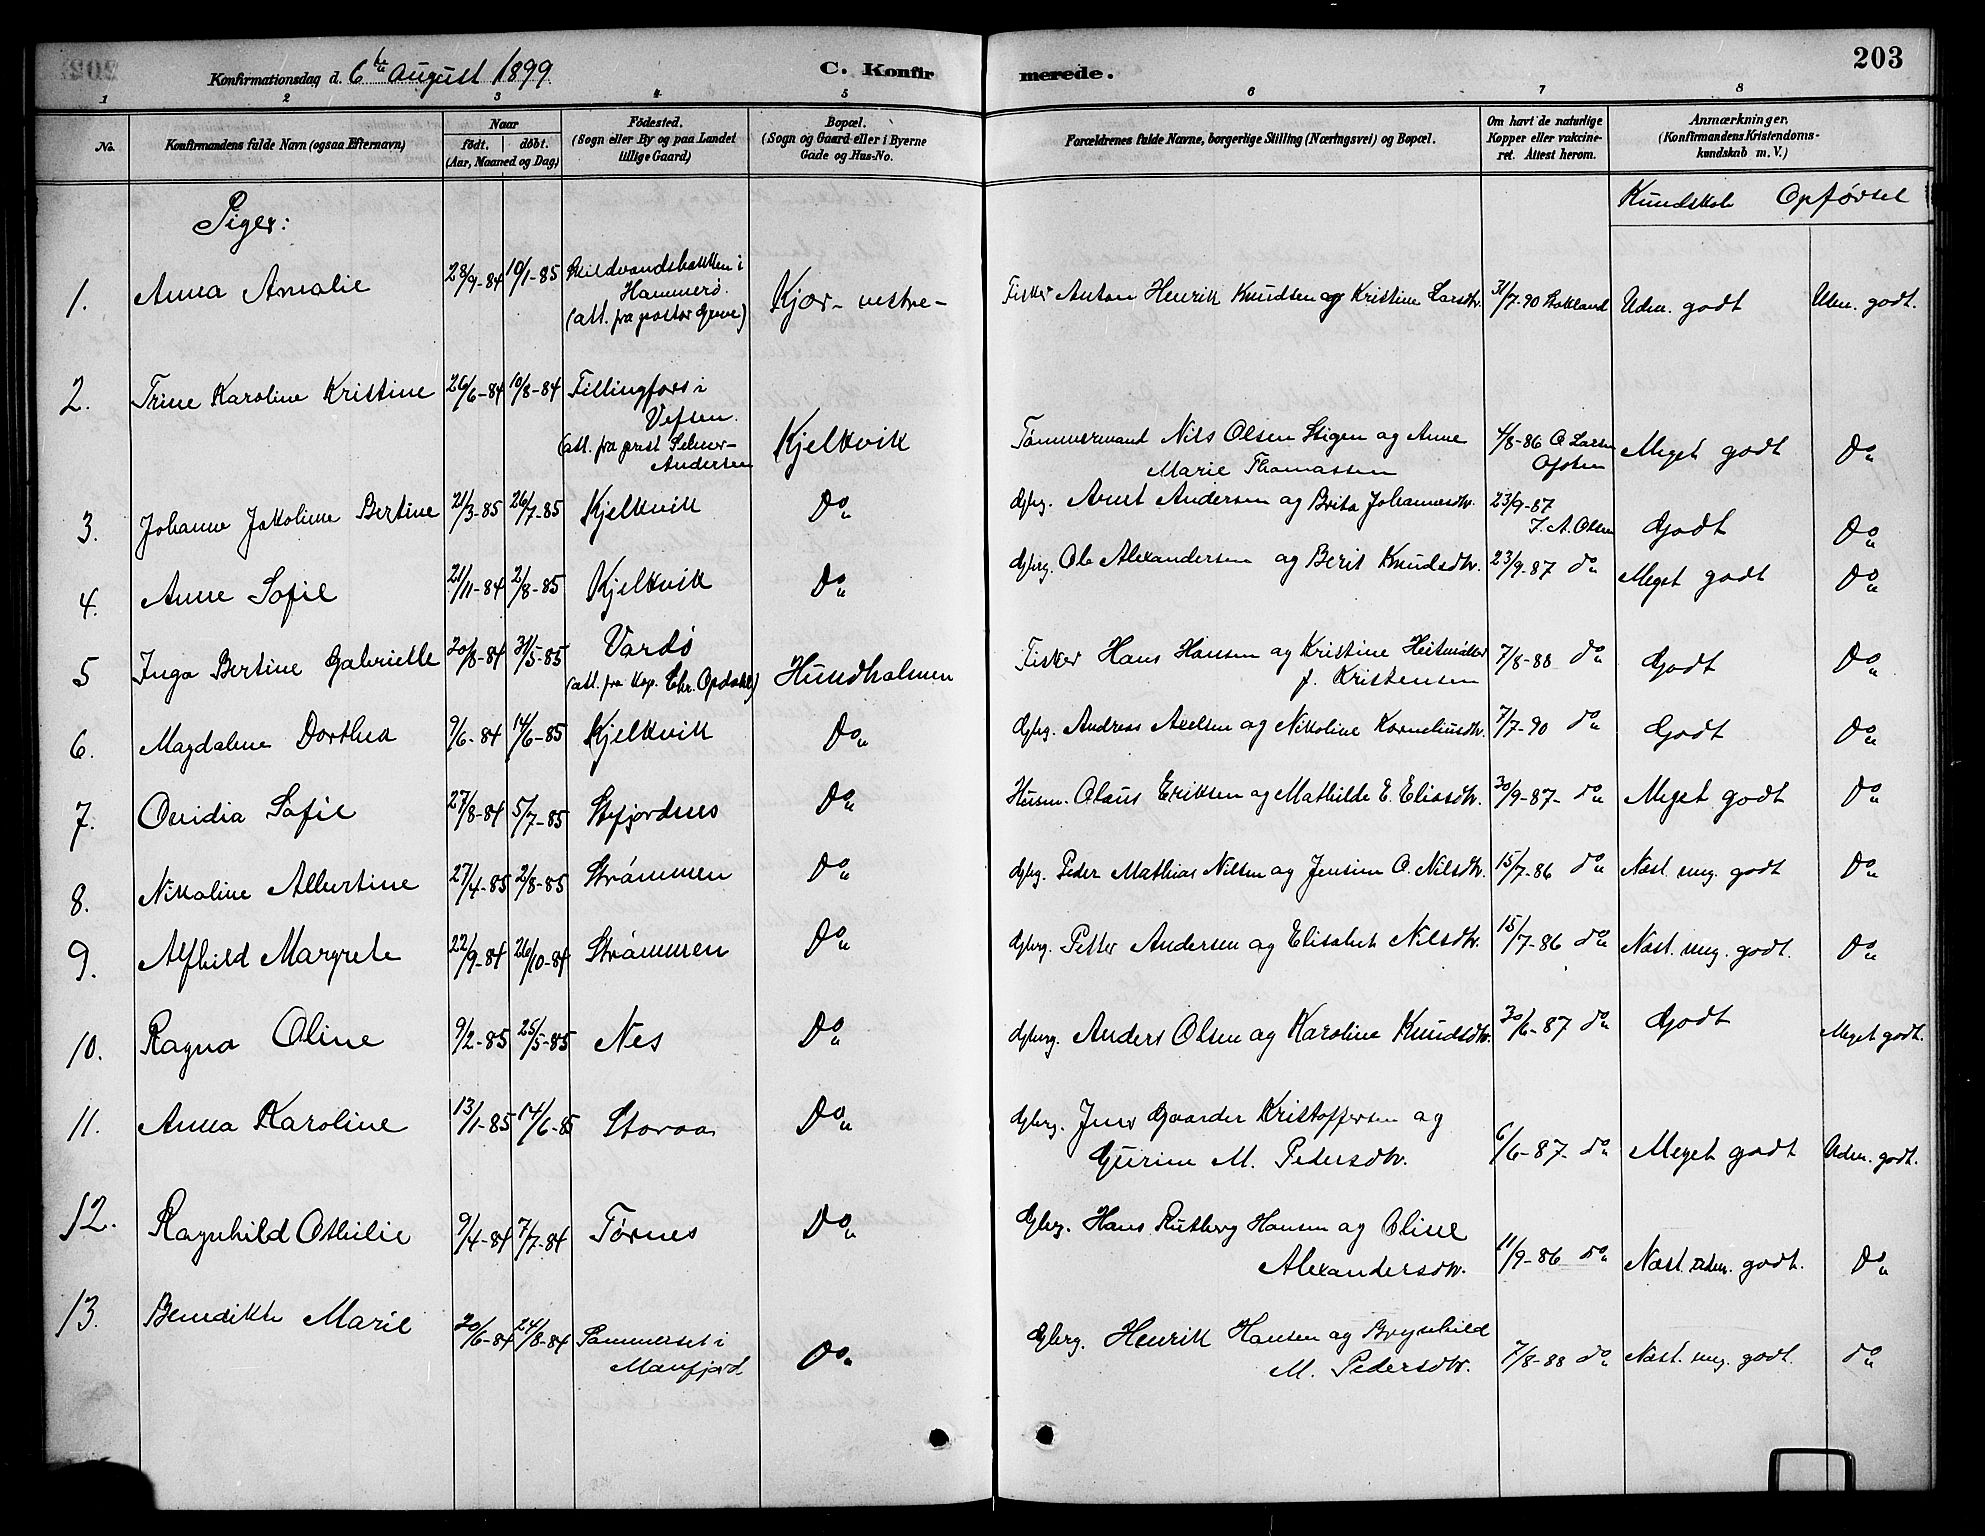 203
Konfirmationsdag d. 6te August 1899.
C. Konfirmerede.
1 2 3 4 5 6 7 8
No.
Konfirmandens fulde Navn (ogsaa Efternavn)
Naar
født. døbt.
(Aar, Maaned og Dag)
Fødested.
(Sogn eller By og paa Landet
tillige Gaard)
Bopæl.
(Sogn og Gaard eller i Byerne
Gade og Hus-No.
Forældrenes fulde Navne, borgerlige Stilling (Næringsvei) og Bopæl.
Om havt de naturlige
Kopper eller vakcine-
ret. Attest herom.
Anmærkninger.
(Konfirmandens Kristendoms-
kundskab m. V.)
Kundskab Opførsel
Piger:
1. Anna Amalie 28/9-84 10/1-85
Hammerø.
Kjær- vestre-
Fisker Anton Henrik Knudsen og Kristine Larsdtr. 31/7-90 Udm. godt Udm. godt.
2. Trine Karoline Kristine 26/6-84 10/8-84 Fillingfors i
Vefsen.
(att. fra prest Selmer-
Andersen
Kjelkvik
Tømmermand Nils Olsen Stigen og Anne
Marie Thomassen
4/8-86 O. Larsen
Ofoten
Meget godt Do
3. Johanne Jakoline Bertine 21/3-85 26/7-85 Kjelkvik Do Gbrg. Arnt Andersen og Brita Johannesdtr. 23/9-87
J. A. Olsen
Godt Do
4. Anne Sofie 21/11-84 2/8-85 Kjelkvik Do Gbrg. Ole Alexandersen og Berit Knudsdtr. 23/9-87 do Meget godt Do
5 Inga Bertine Gabrielle 20/8-84 31/5-85 Vardø
(att. fra kap. Chr. Opdahl)
Hundholmen
Fisker Hans Hansen og Kristine Heitmøller
f. Kristensen
7/8-88 do Godt Do
6. Magdalene Dorthea 9/6-84 14/6-85 Kjelkvik Do Gbrg. Andreas Axelsen og Nikoline Korneliusdtr. 7/7-90 do Godt Do
7. Ovidia Sofie 27/8-84 5/7-85 Stefjordnes Do Husm. Olaus Eriksen og Mathilde E. Eliasdtr. 30/9-87- do Meget godt Do
8. Nikoline Albertine 27/4-85 2/8-85 Strømmen Do Gbrg. Peder Mathias Nilsen og Jensine O. Nilsdtr. 15/7-86 do Næst. meg. godt Do
9. Alfhild Margrete 22/9-84 26/10-84 Strømmen Do Gbrg. Petter Andersen og Elisabet Nilsdtr. 15/7-86 do Næst. meg. godt. Do
10. Ragna Oline 9/2-85 25/5-85 Nes Do Gbrg. Anders Olsen og Karoline Knudsdtr. 30/6-87 do Godt Meget godt.
11. Anna Karoline 13/1-85 14/6-85 Storaa Do Gbrg. Jens Gaarder Kristoffersen og
Gurine M. Pedersdtr.
6/6-87- do Meget godt Udm. godt.
12. Ragnhild Othilie 9/4-84 7/7-84 Tørnes Do Gbrg. Hans Rutberg Hansen og Oline
Alexandersdtr.
11/9-86 do Næst. udm. godt. Do
13. Benedikte Marie 20/6-84 24/8-84 Sommerset i
Manfjord
Do
Gbrg. Henrik Hansen og Brynhild
M. Pedersdtr.
7/8-88 do Næst. meg. godt. do